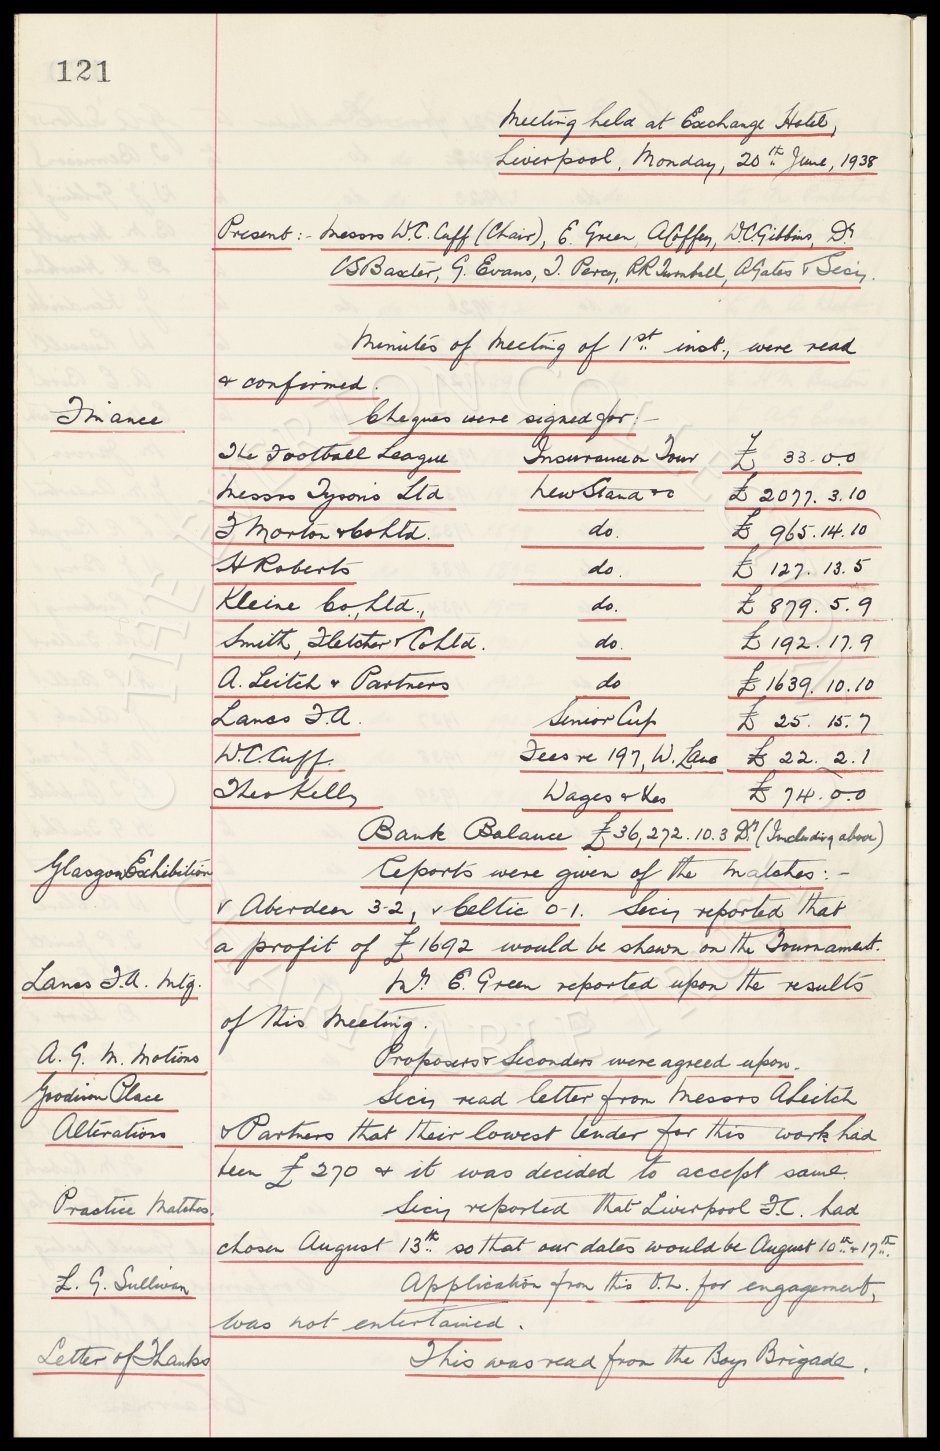 121
Meeting held at Exchange Hotel,
Liverpool, Monday, 20th June, 1938
Present :- Messrs W.C. Cuff (Chair), E. Green, A Coffey, W.C. Gibbins, Dr
C S Baxter, G. Evans, T. Percy, R R Turnbull, A Gates & Secy.
Minutes of Meeting of 1st inst., were read
& confirmed.
Finance Cheques were signed for :-
The Football League Insurance on Tour £ 33.0.0
Messrs Tysons Ltd New Stand &c £ 2077. 3. 10
F Morton & Co Ltd. do. £ 965. 14. 10
H Roberts do. £ 127. 13. 5
Kleine Co., Ltd., do. £ 879. 5. 9
Smith, Fletcher & Co Ltd. do. £ 192. 17. 9
A. Leitch & Partners do £ 1639. 10. 10
Lancs F.A. Senior Cup £ 25. 15. 7
W.C. Cuff. Fees re 197, W. Lane £ 22. 2. 1
Theo Kelly Wages & Xes £ 74. 0. 0
Bank Balance £36,272. 10. 3 Dr. (Including above)
Glasgow Exhibition Reports were given of the matches :-
v Aberdeen 3-2, v Celtic 0-1. Secy reported that
a profit of £1692 would be shewn on the Tournament.
Lancs F.A. Mtg. Mr. E. Green reported upon the results
of this Meeting.
A. G. M. Motions Proposers & Seconders were agreed upon.
Goodison Place Secy read letter from Messrs A Leitch
Alterations & Partners that their lowest tender for this work had
been £270 & it was decided to accept same.
Practice Matches. Secy reported that Liverpool F.C. had
chosen August 13th. so that our dates would be August 10th. & 17th.
L. G. Sullivan Application from this O.L. for engagement,
was not entertained.
Letter of Thanks This was read from the Boys Brigade.